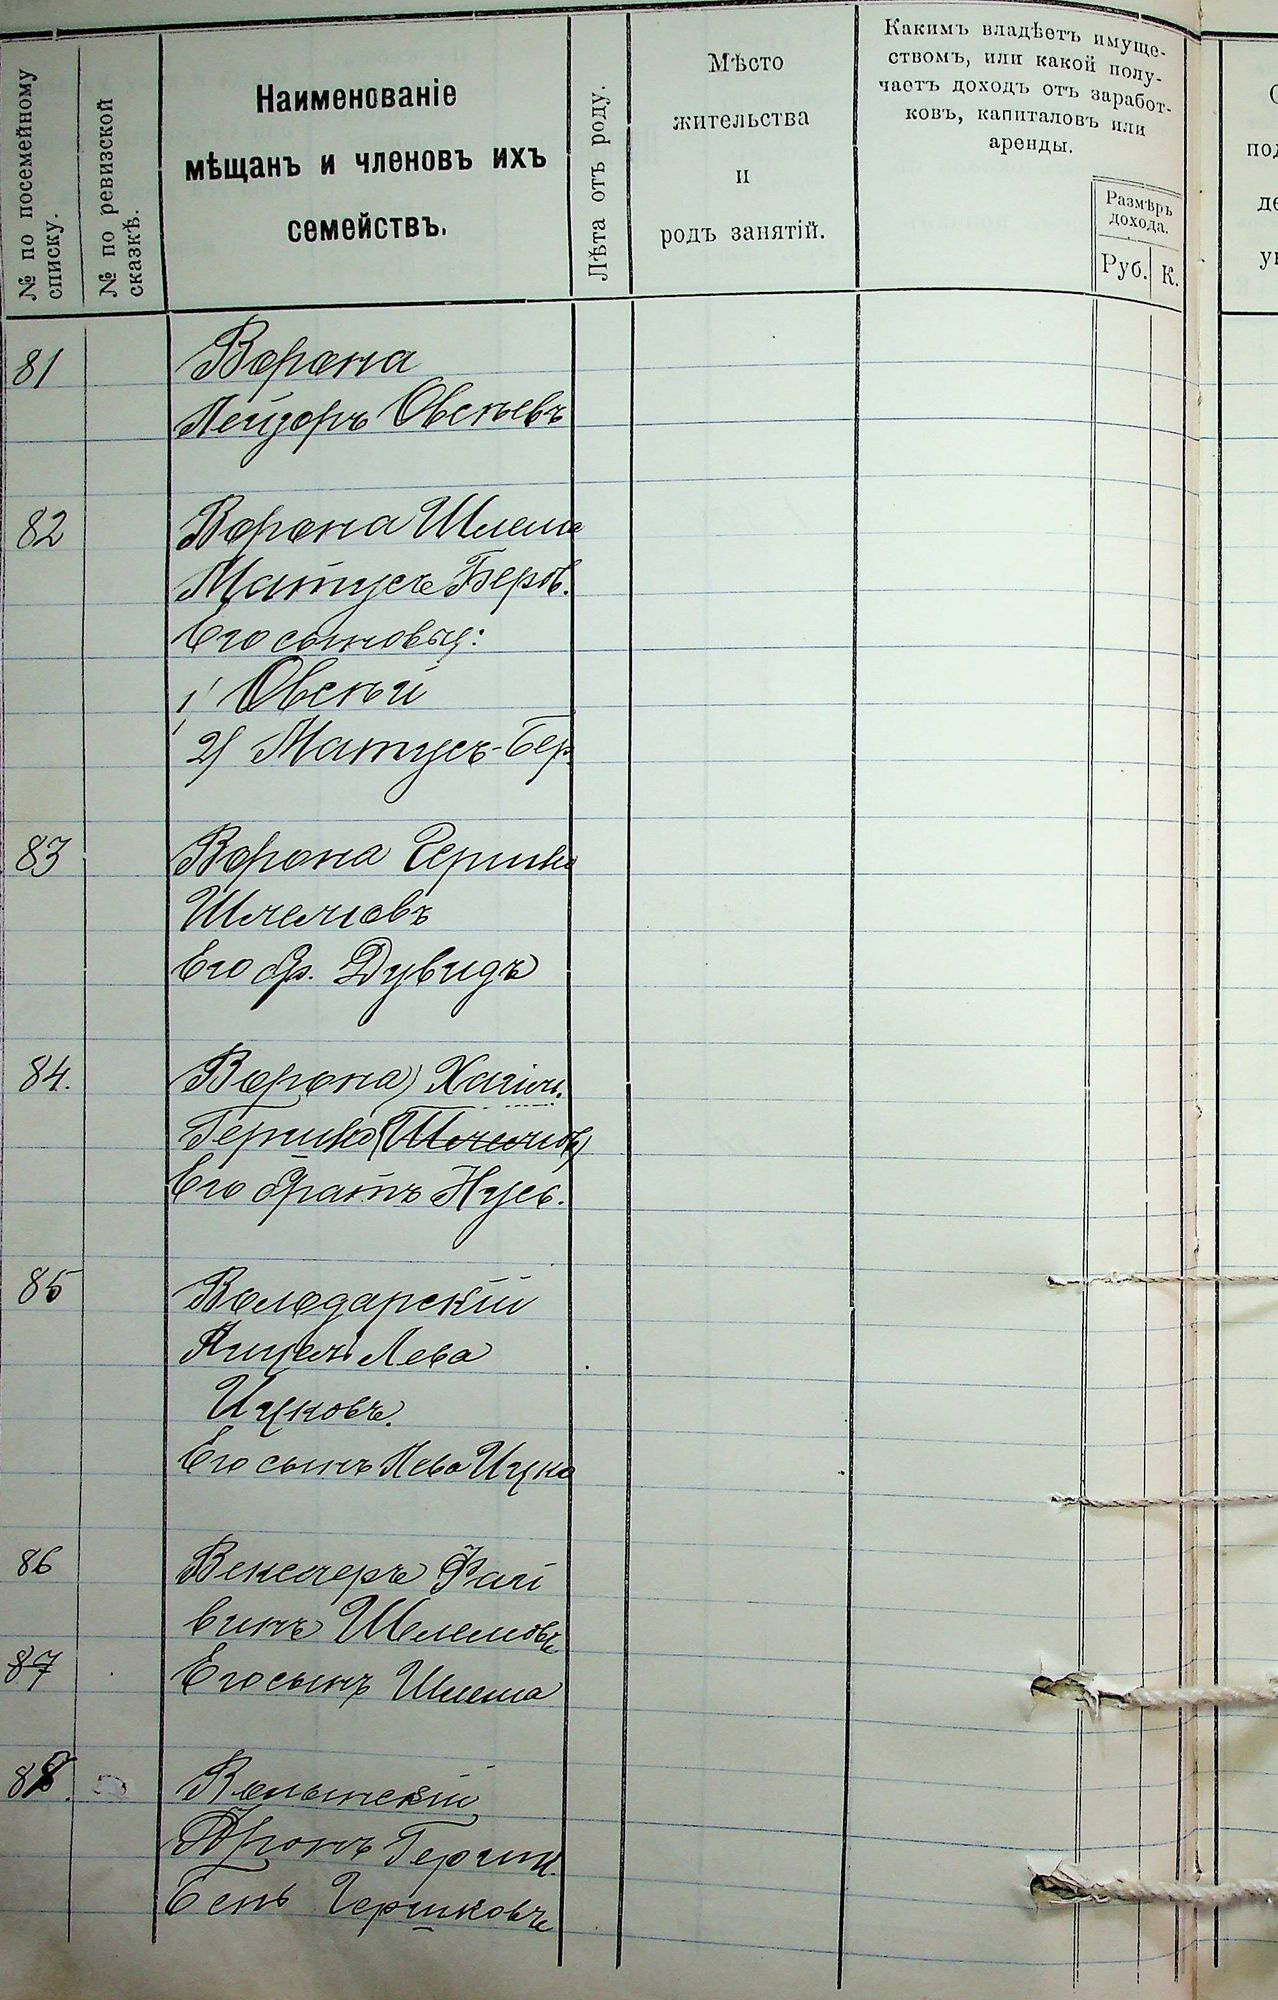 № по посемейному
списку.
№ по ревизской
сказкѣ.
Наименованіе
мѣщанъ и членовъ ихъ
семействъ.
Лѣта отъ роду.
Мѣсто
жительства
и
родъ занятій.
Какимъ владѣетъ имуще-
ствомъ, или какой полу-
чаетъ доходъ отъ заработ-
ковъ, капиталовъ или
аренды.
Размѣръ
дохода.
Руб. К.
81 Ворона
Лейзоръ Овсѣевъ
82 Ворона Шлема
Матусъ Беров.
Его сыновья:
1/ Овсѣй
2/ Матусъ-Бер
83 Ворона Гершко
Шлемовъ
Его бр. Дувидъ
84. Ворона Хаим.
Гершко (Шлемов)
Его братъ Нусь.
85 Володарскій
Лева
Ицковъ.
Его сынъ Лева Ицко
86 Векслеръ Фай
вишъ Шлемовъ
87 Его сынъ Шлема
88. Волынскій
Аронъ Герш.
Бень Гершковъ